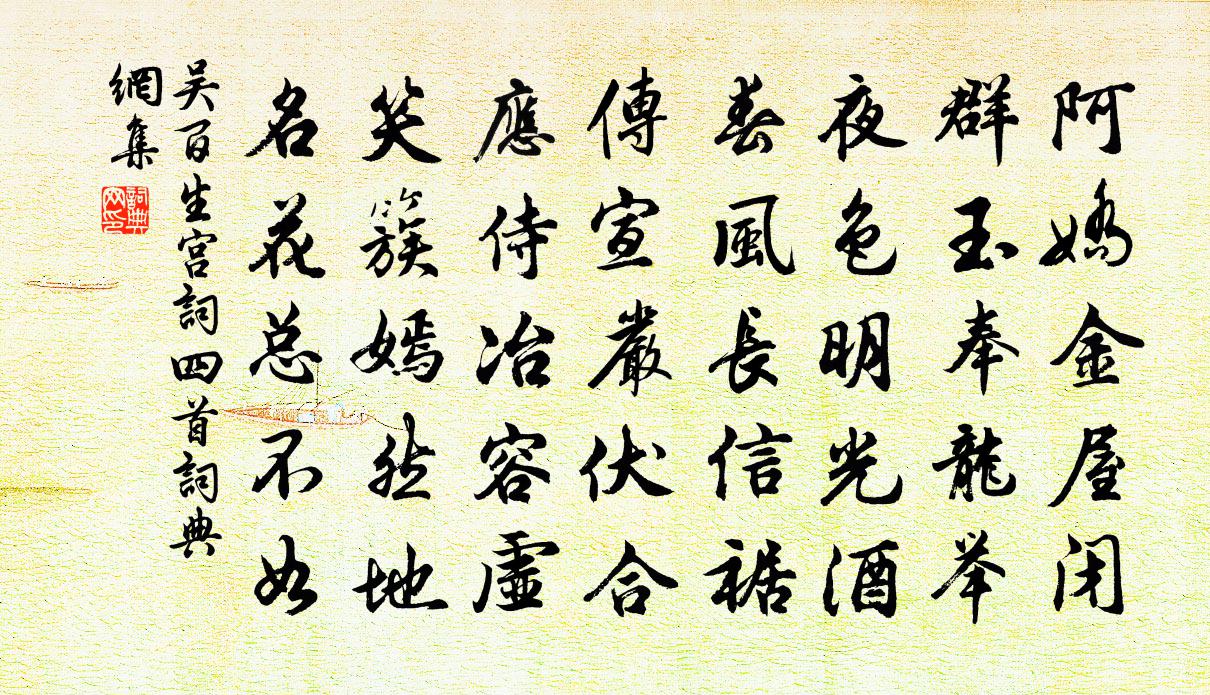 阿嬌金屋闭
群玉奉龍举
夜色明光酒
春風長信裾
傳宣嚴伏合
應侍冶容虛
笑簇嫣然地
名花总不如
吴百生宫詞四首詞典
網集
詞典
网印